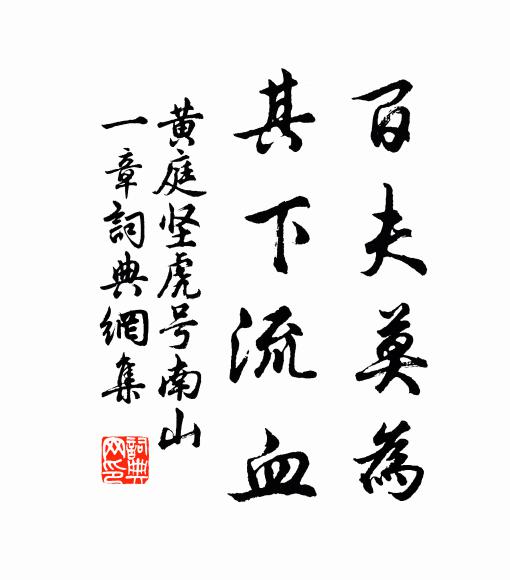 百夫莫為
其下流血
黄庭坚虎号南山
一章詞典網集
詞典
网印